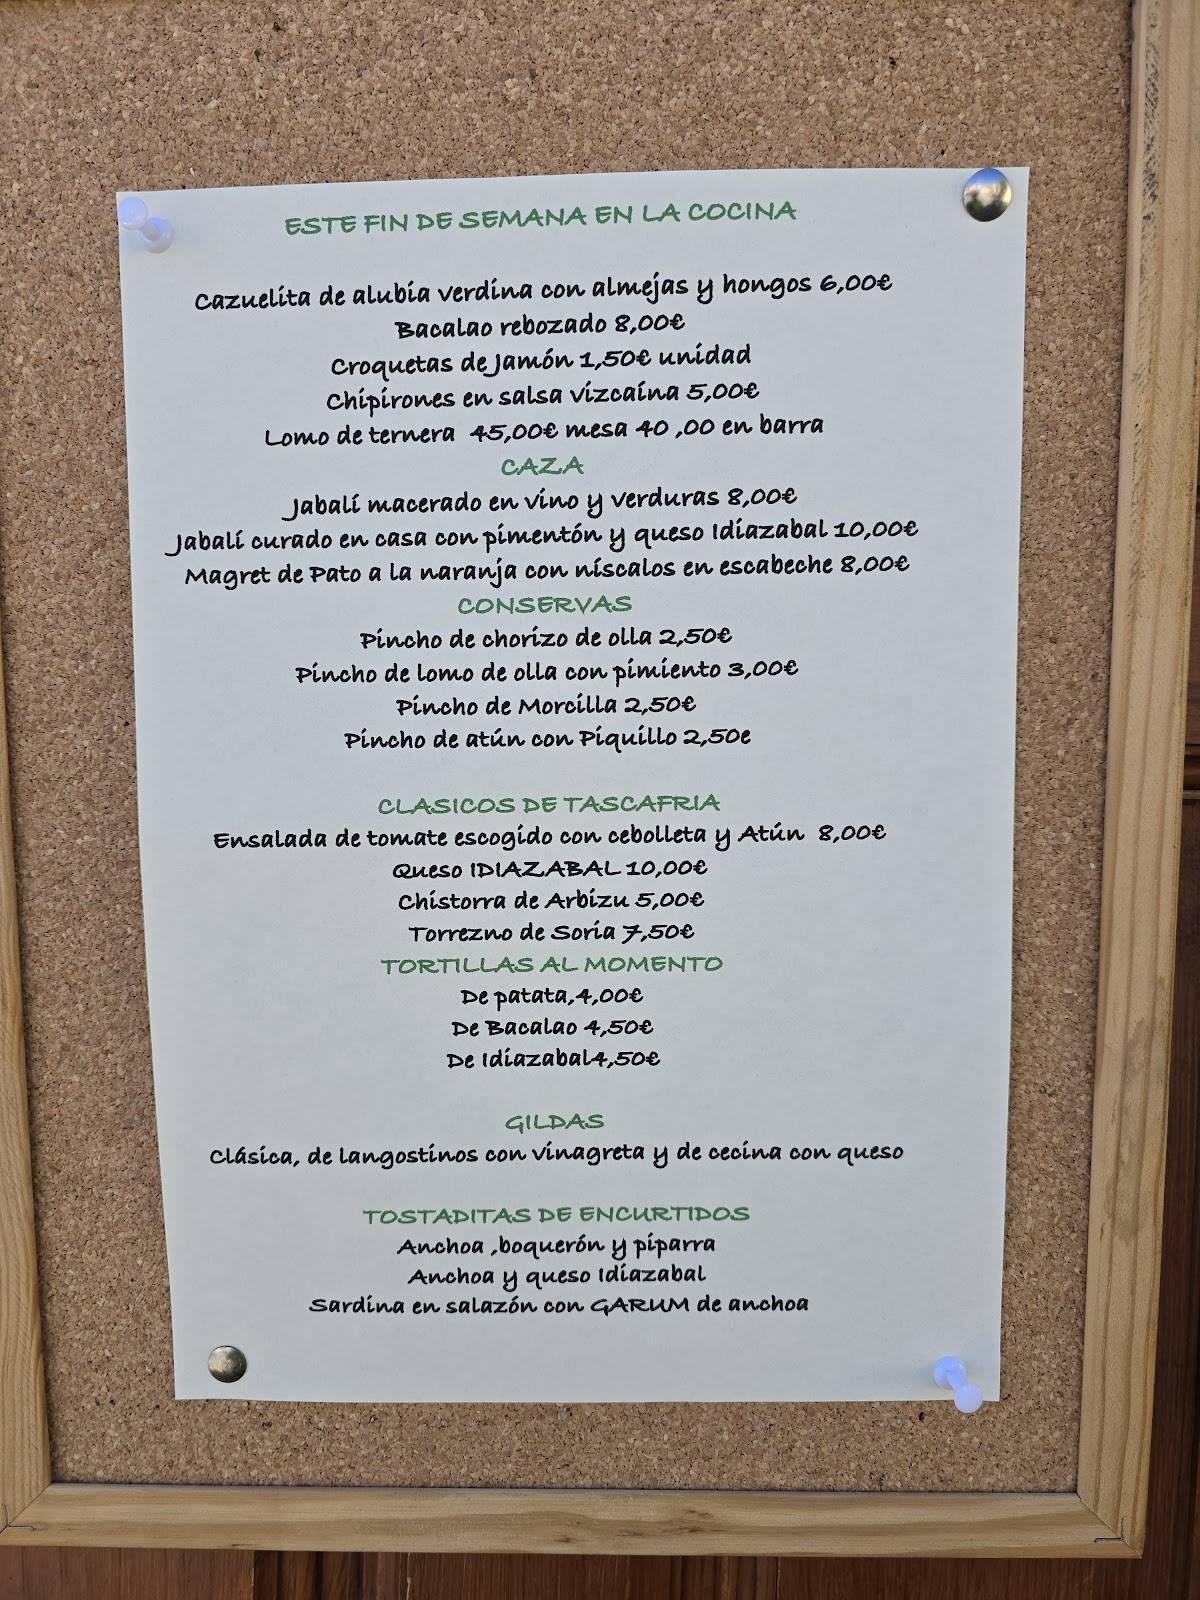 ESTE FIN DE SEMANA EN LA COCINA
Cazuelita de alubia verdina con almejas y hongos 6,00€
Bacalao rebozado 8,00€
Croquetas de Jamón 1,50€ unidad
Chipirones en salsa vizcaína 5,00€
Lomo de ternera 45,00€ mesa 40 ,00 en barra
CAZA
Jabalí macerado en vino y verduras 8,00€
Jabalí curado en casa con pimentón y queso Idiazabal 10,00€
Magret de Pato a la naranja con níscalos en escabeche 8,00€
CONSERVAS
Pincho de chorizo de olla 2,50€
Pincho de lomo de olla con pimiento 3,00€
Pincho de Morcilla 2,50€
Pincho de atún con Piquillo 2,50e
CLASICOS DE TASCAFRIA
Ensalada de tomate escogido con cebolleta y Atún 8,00€
Queso IDIAZABAL 10,00€
Chistorra de Arbizu 5,00€
Torrezno de Soria 7,50€
TORTILLAS AL MOMENTO
De patata,4,00€
De Bacalao 4,50€
De Idiazabal4,50€
GILDAS
Clásica, de langostinos con vinagreta y de cecina con queso
TOSTADITAS DE ENCURTIDOS
Anchoa ,boquerón y piparra
Anchoa y queso Idiazabal
Sardina en salazón con GARUM de anchoa